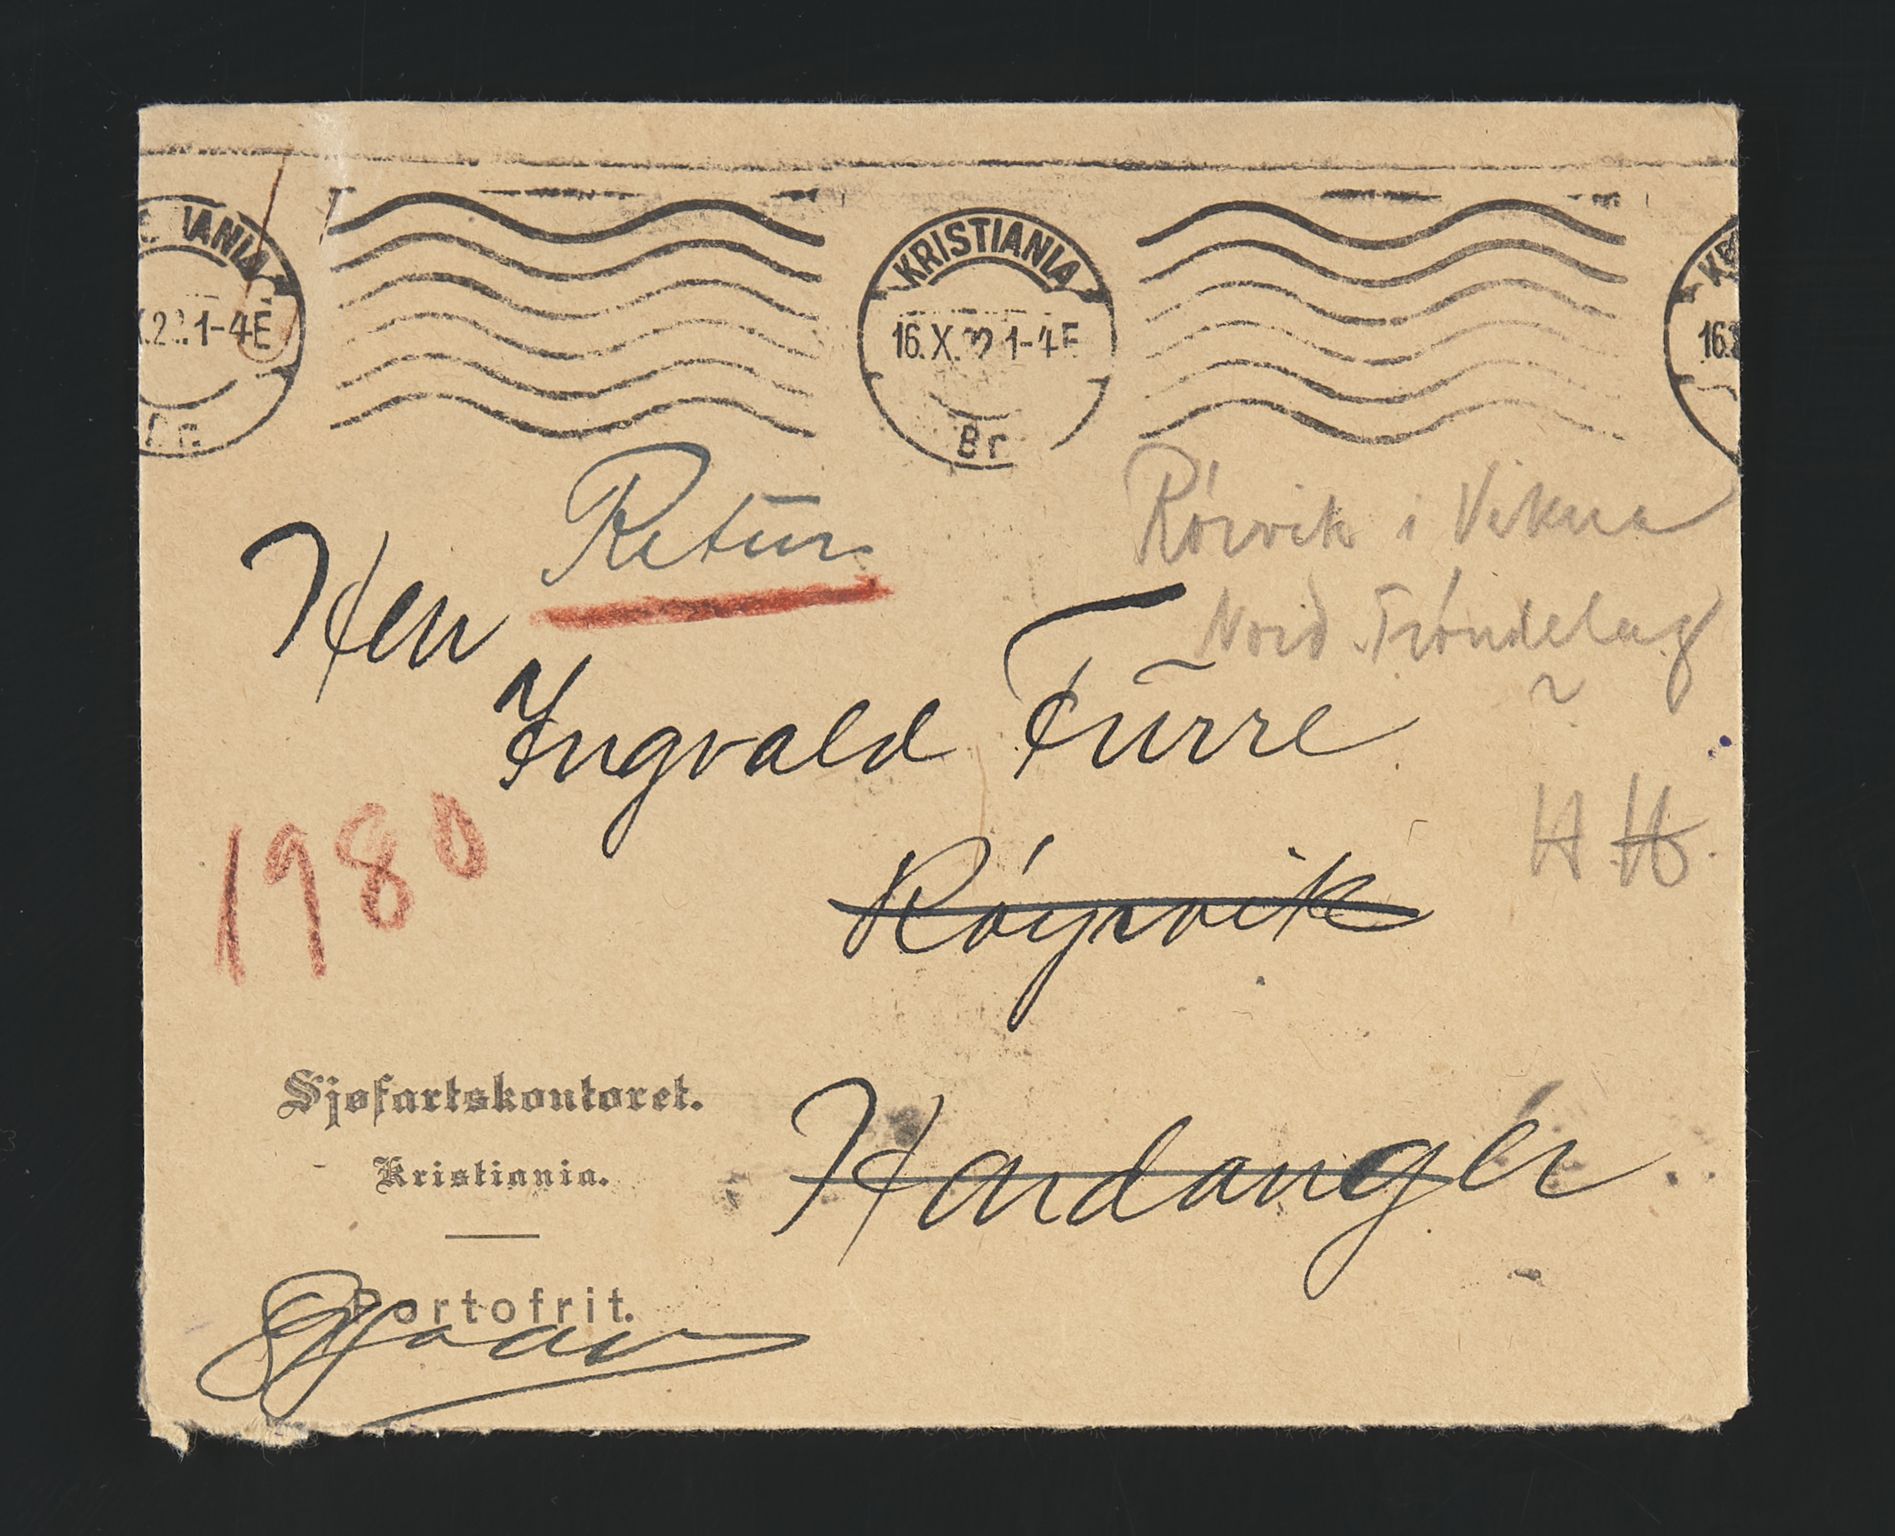 KRISTIANIA
16.X.22 1-4E
Br
Retur
Rörvik i Vikna
Nord Tröndelag
Herr
Ingvald Furre
H H.
1980
Röyrvik
Hardanger
Sjøfartskontoret.
Kristiania.
Portofrit.